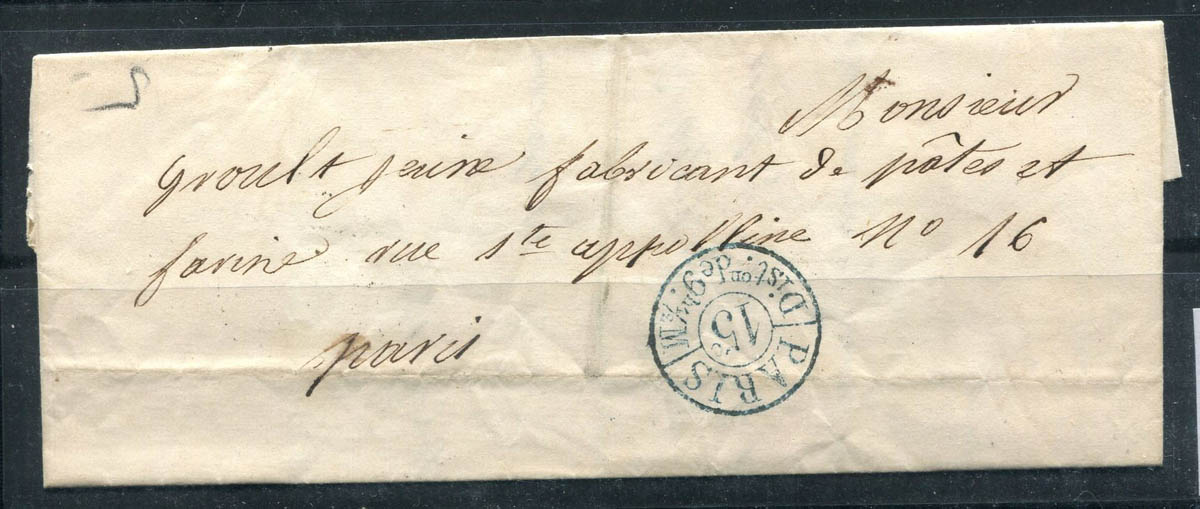 Monsieur
groult jeune fabricant de pâtes et
farine rue Ste appolline No 16
paris
PARIS
Dist.on de 9h
15